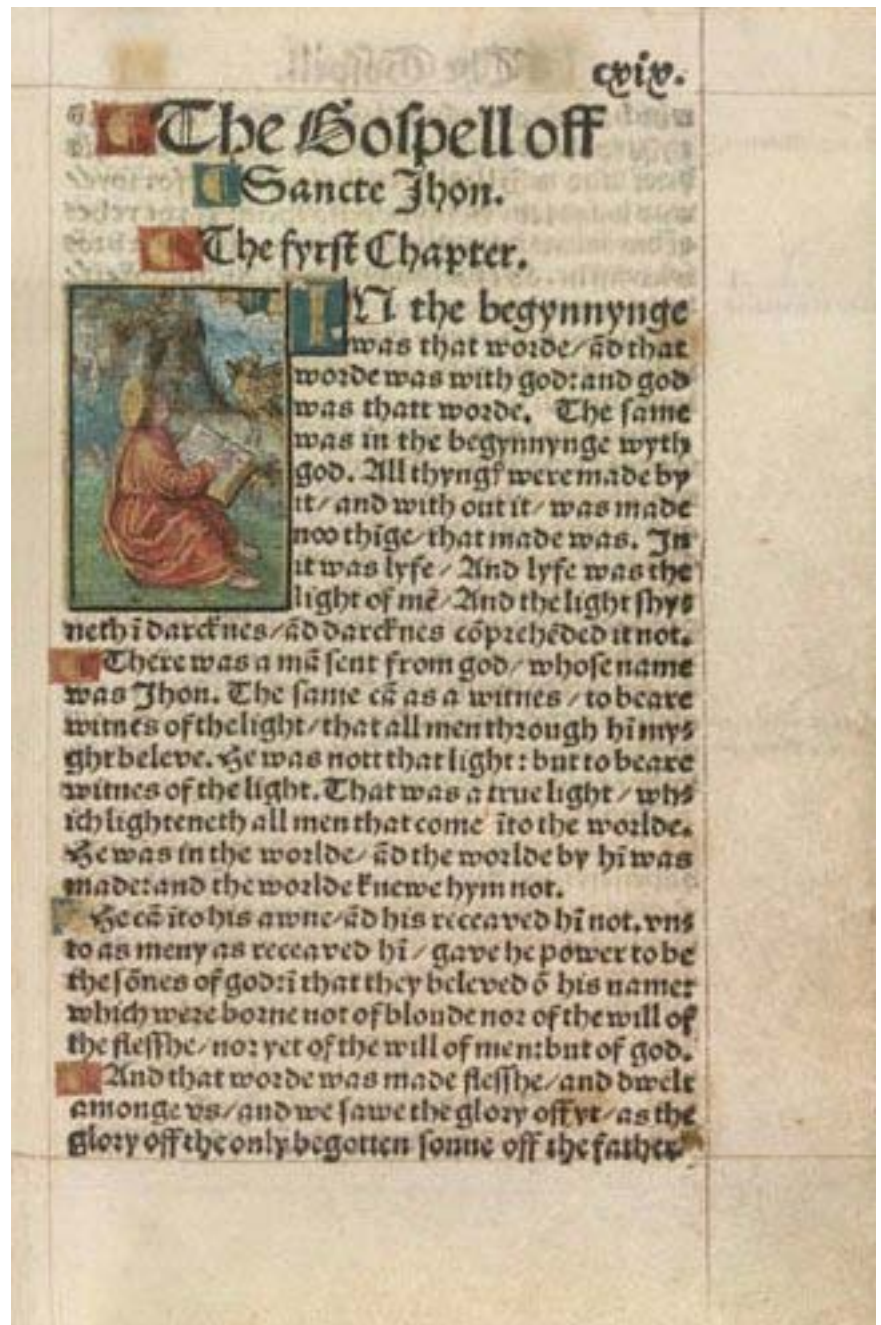 cxix.
The Gospell off
Sancte Jhon.
The fyrst Chapter.
IN the begynnynge
was that worde/ ād that
worde was with god: and god
was thatt worde. The same
was in the begynnynge wyth
god. All thyngs were made by
it/ and with out it/ was made
noo thīge/ that made was. In
it was lyfe/ And lyfe was the
light of mē/ And the light shy⸗
neth ī darcknes/ ād darcknes cōprehēded it not.
There was a mā sent from god/ whose name
was Jhon. The same cā as a witnes/ to beare
witnes of the light/ that all men through hī my⸗
ght beleve. He was nott that light: but to beare
witnes of the light. That was a true light/ wh⸗
ich lighteneth all men that come īto the worlde.
He was in the worlde/ ād the worlde by hī was
made: and the worlde knewe hym not.
He cā īto his awne/ ād his receaved hī not. vn⸗
to as meny as receaved hī/ gave he power to be
the sōnes of god: ī that they beleved ō his name:
which were borne not of bloude nor of the will of
the flesshe/ nor yet of the will of men: but of god.
And that worde was made flesshe/ and dwelt
amonge vs/ and we sawe the glory off yt/ as the
glory off the only begotten sonne off the father